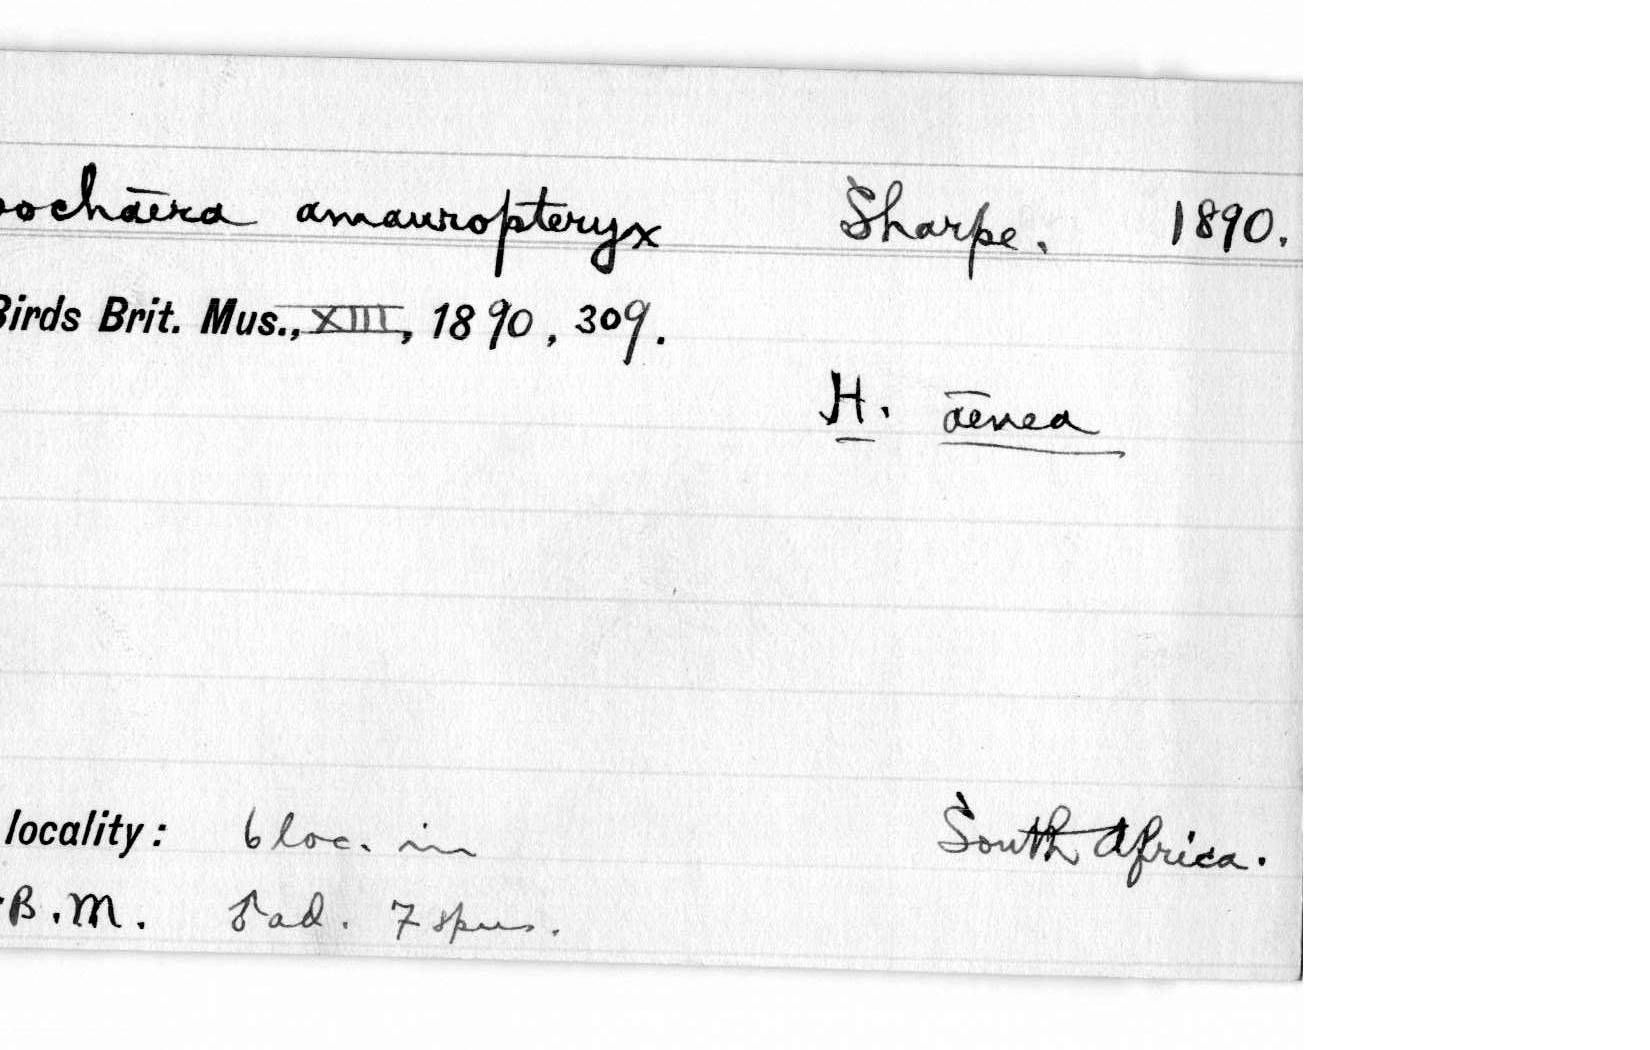 ochāera amauropteryx Sharpe. 1890.
Birds Brit. Mus., XIII, 1890, 309.
H. āenea
locality: 6 loc. in South Africa.
B.M. ♂ad. 7 spms.